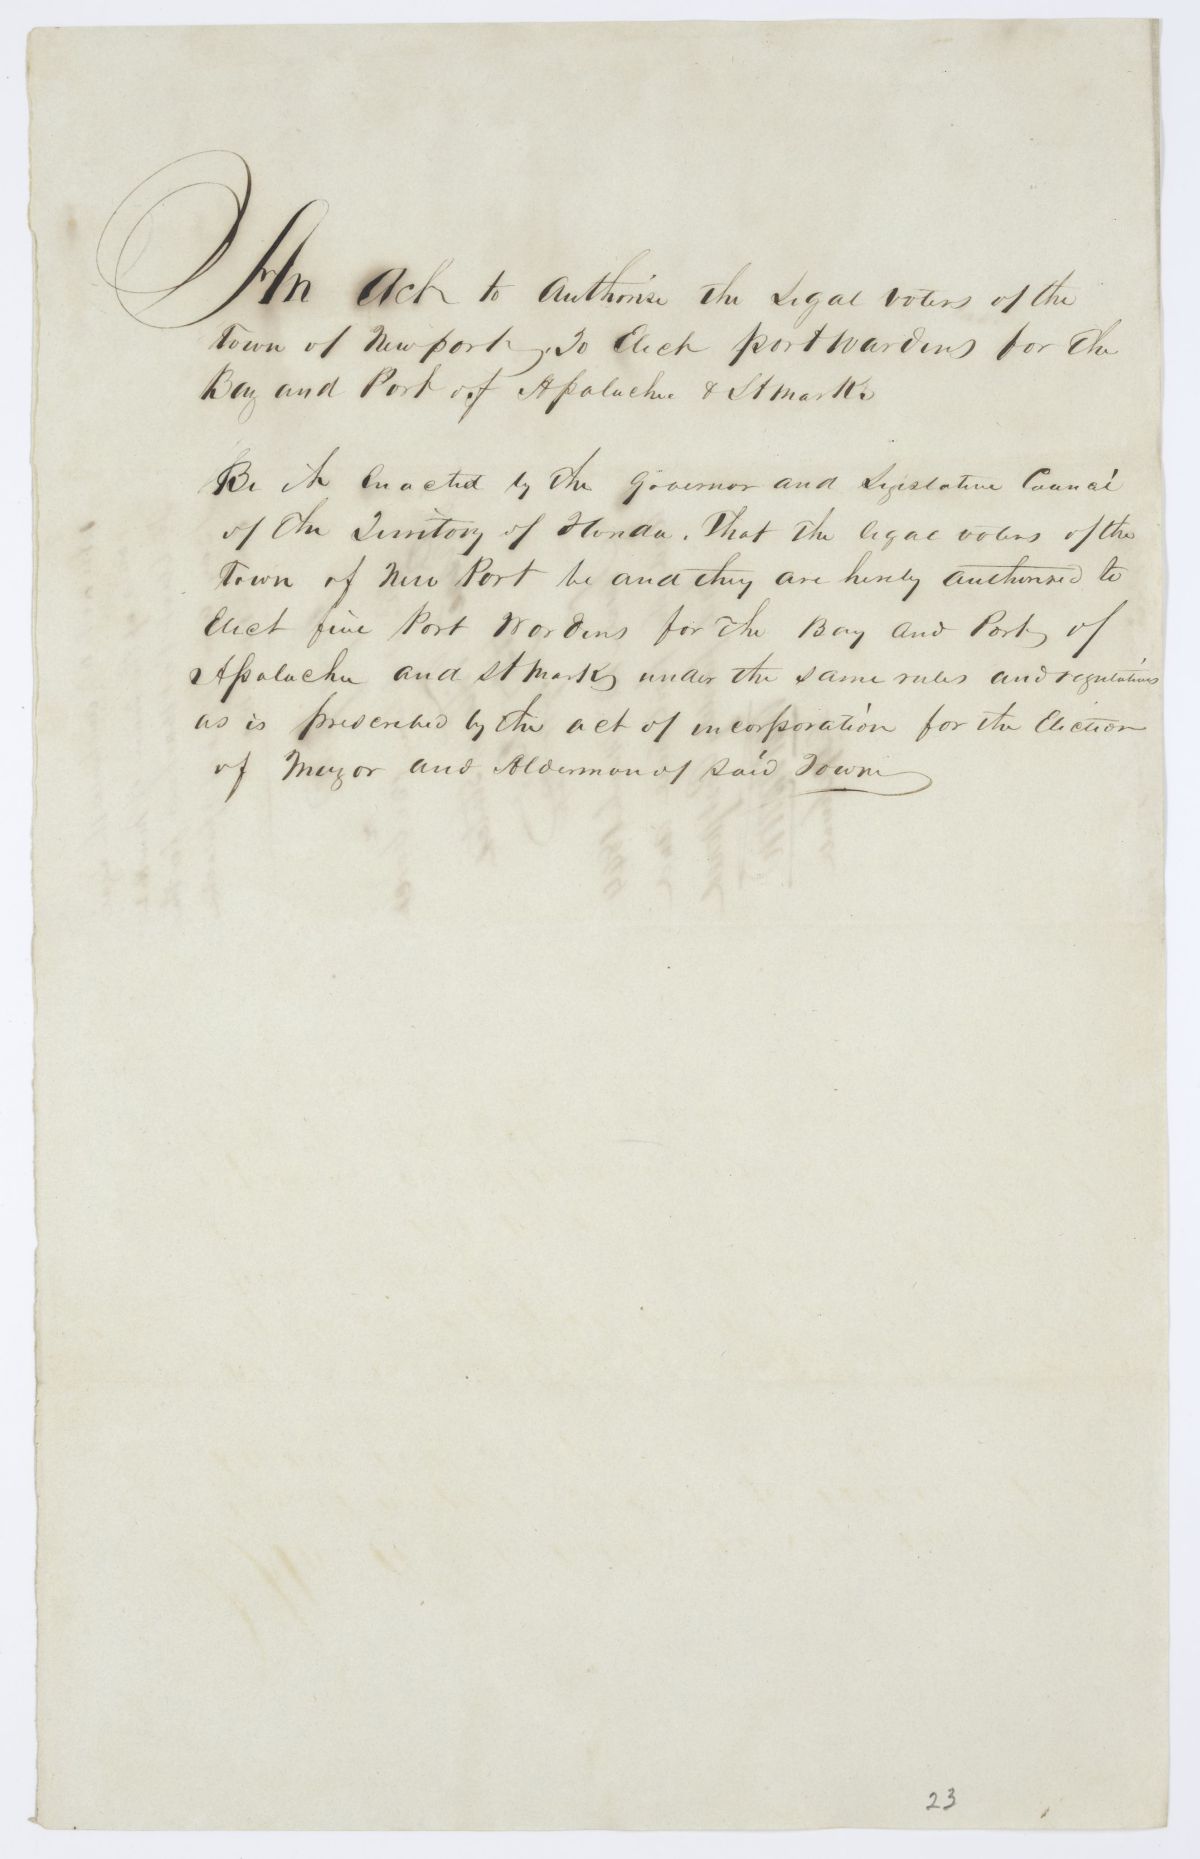 An Act to Authorise the Legal voters of the
Town of Newport, To Elect port wardens for the
Bay and Port of Apalachee & St Marks
Be it Enacted by the Governor and Legislative Council
of the Territory of Florida. That the legal voters of the
Town of New Port be and they are hereby authorised to
Elect five Port Wardens for the Bay and Port of
Apalachee and St Marks under the same rules and regulations
as is prescribed by the act of incorporation for the Election
of Mayor and Alderman of said Town
23